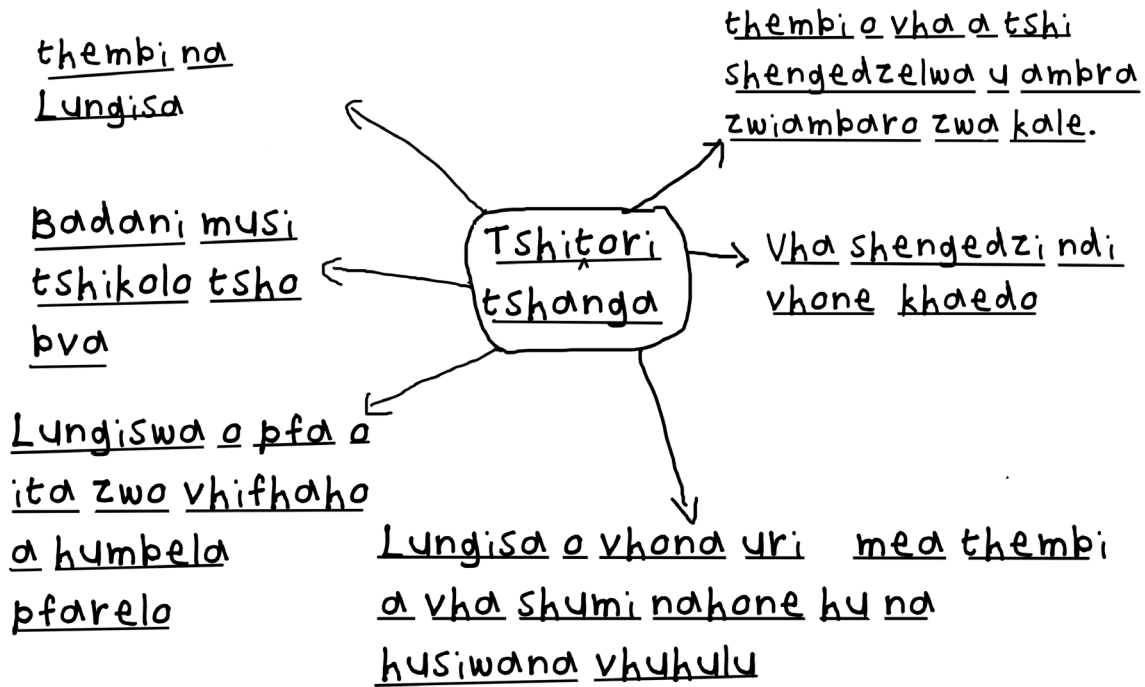 thembi na
Lungisa
thembi o vha a tshi
shengedzelwa u ambra
zwiambaro zwa kale.
Badani musi
tshikolo tsho
bva
Tshitori
tshanga
Vha shengedzi ndi
vhone khaedo
Lungiswa o pfa o
ita zwo vhifhaho
a humbela
pfarelo
Lungisa o vhona uri mea thembi
a vha shumi nahone hu na
husiwana vhuhulu